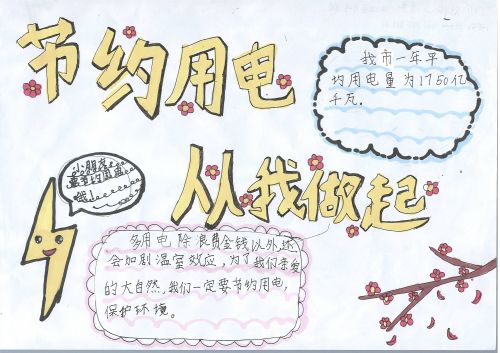 节约用电
我市一年平
均用电量为1750亿
千瓦.
小朋友
要节约用电
从我做起
多用电除浪费金钱以外,还
会加剧温室效应,为了我们亲爱
的大自然,我们一定要节约用电,
保护环境。